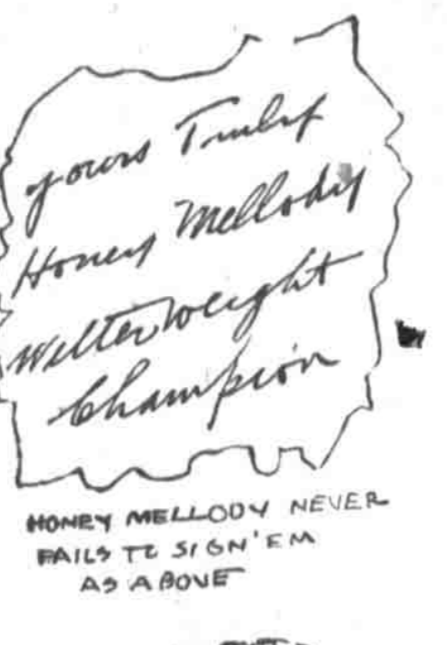 yours Truly
Honey Mellody
Welterweight
Champion
HONEY MELLODY NEVER
FAILS TO SIGN 'EM
AS ABOVE